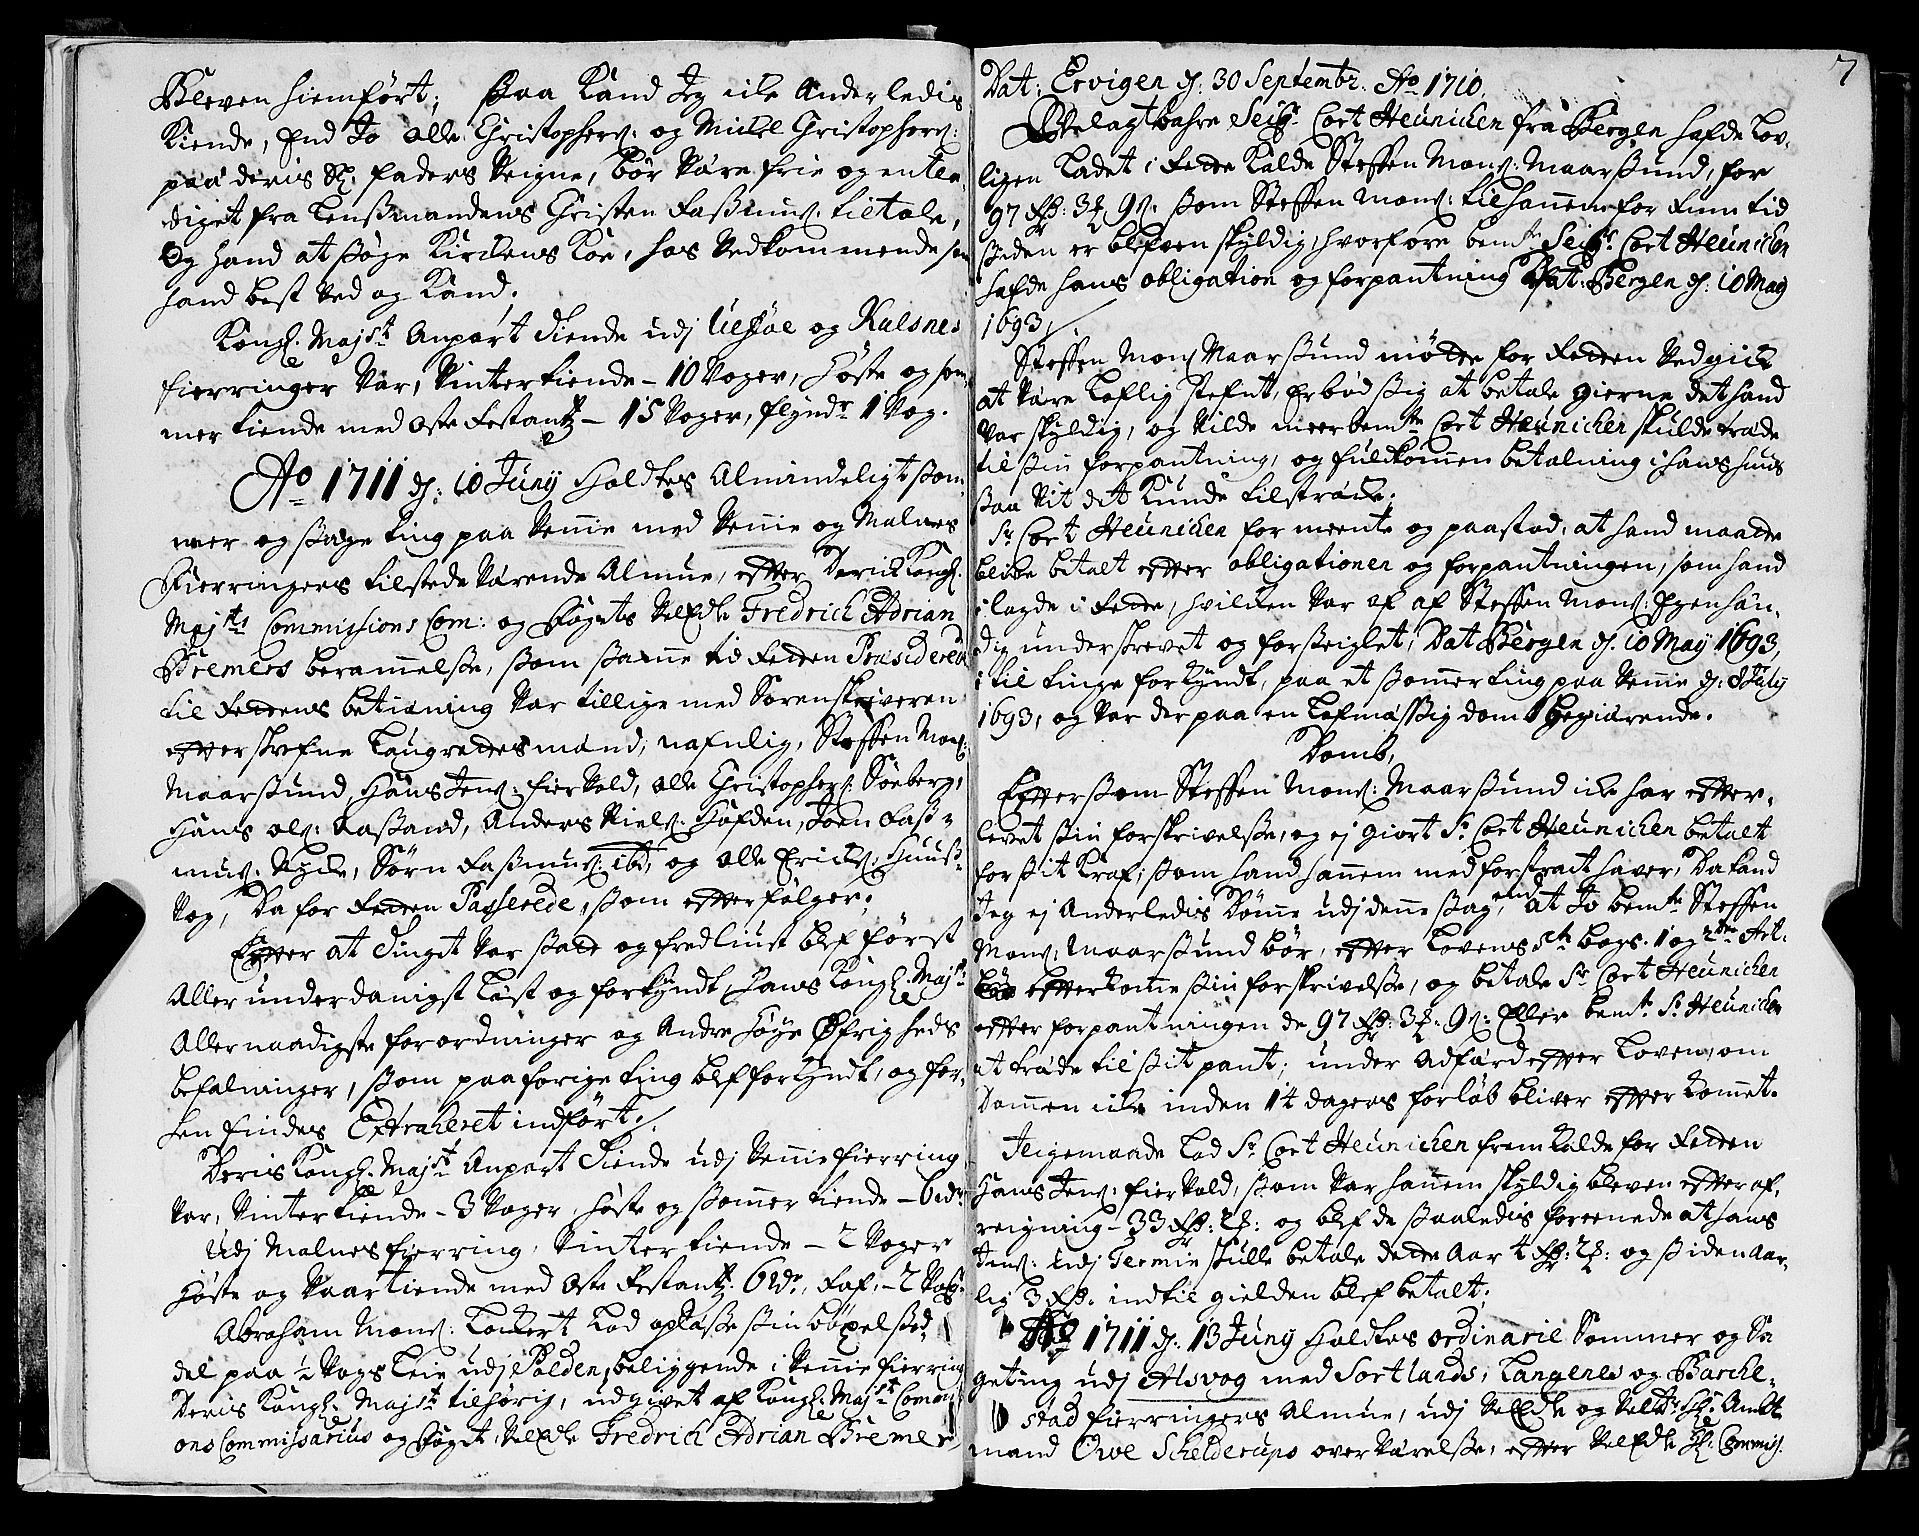 Bleven hiemført; saa kand Jeg icke Anderledis
Kiende, End Jo Olle Christophers: og Mickel Christophers:
paa deris Sl: faders Veigne, bør være frie og entle-
diget fra Lensmandens Christen Rasmus: tiltale,
Og hand at søge Kirckens Koe, hos Vedkommende som
hand best ved og kand.
Kongl: Majsts Anpart tiende udj Ulsøe og Kulsnes
fierringer var, Vintertiende - 10 Voger, Høste og som-
mer tiende med Oste Restantz - 15 Voger, flyndr 1 Vog.
Ao 1711 d: 10 Juny Holdtes Almindeligt Som-
mer og Sageting paa Vennie med Vennie og Malnes
Fierringers tilstede værende Almue, efter Deris Kongl:
Majts Commissions Com: og Fogets Velædle Fredrich Adrian
Bremers berammelse, som samme tid Retten Præsiderede
til Rettens betiening var tillige med Sorenskriveren
efterskrefne Laugrettesmænd, nafnlig, Steffen Mons:
Maarsund, Hans Jens: fiervold, Olle Christophers: Søeberg,
Hans Ols: Aasand, Anders Niels: Høfden, Joen Ras-
mus: Nycke, Sørn Rasmus: ibd, og Olle Ericks: Huus-
Vog, Da for Retten Passerede, som efterfølger.
Efter at Tinget var satt og fredliust blef først
Allerunderdanigst Læst og forkyndt, Hans Kongl: Majts
Allernaadigste forordninger og Andre Høye Øfrigheds
befalninger, som paa forige ting blef forkyndt, og for-
hen findes Extraheret indført.
Deris Kongl: Majsts Anpart Tiende udj Vennie fierring
var, Vintertiende - 3 Voger, Høste og sommertiende - 6 Vdr
Udj Malnes fierring, Vinter tiende - 2 Voger
Høste og Vaartiende med Oste Restantz 6 Vdr, Raf, - 2 Vog:
Abraham Mons: Lockert Lod oplæse sin bøxelsed-
del paa 1/2 Vogs Leie udj Polden, beliggende i Vennie fierring
Deris Kongl: Majsts tilhørig, udgivet af Kongl: Majsts Commissi-
ons Commissarius og Foget, Velædle Fredrich Adrian Bremer
7
Dat: Ervigen d: 30 Septembr: Ao 1710.
Velagtbahre Seigr Cort Heunichen fra Bergen hafde Lov-
ligen Ladet i Rette Kalde Steffen Mons: Maarsund, for
97 Rd: 3 9 som Steffen Mons: til hannem for Rum tid
siden er blefven skyldig, hvorfore bemte Seigr Cort Heunichen
hafde hans obligation og forpantning Dat: Bergen d: 10 May
1693,
Steffen Mons Maarsund mødte for Retten Vedgick
at være Loflig stefnt, Erbød sig at betale gierne det hand
var skyldig, og vilde meerbemte Cort Heunichen skulde træde
til sin forpantning, og fuldkommen betalning i hans huus
saa vit det kunde tilstræcke,
Sr Cort Heunichen formeente og paastod, at hand maatte
blive betalt efter obligationen og forpantningen, som hand
i lagde i Rette, hvilken var af af Steffen Mons: Egenhæn-
dig underskrevet og forseiglet, Dat Bergen d: 10 May 1693,
i til tinge forkyndt, paa et sommerting paa Vennie d: 8 July
1693, og var derpaa en Lofmæssig dom begiærende.
Domb,
Eftersom Steffen Mons: Maarsund icke har efter-
levet sin forskrivelse, og ej giort Sr Cort Heunichen betalt
for sit Kraf, som hand hannem med forstract haver, Da kand
Jeg ej Anderledis Dømme udj denne sag, end at Jo bemte Steffen
Mons: Maarsund bør, efter Lovens 5te bogs 1 og 2den Art:
efterkomme sin forskrivelse, og betale Sr Cort Heunichen
efter forpantningen de 97 Rd: 3 9 Eller bemte Sr Heunichen
at træde til sit pant, under Adfærd efter Loven, om
Dommen icke inden 14 dagers forløb bliver efterkommet.
Ligemaade Lod Sr Cort Heunichen fremkalde for Retten
Hans Jens: Fiervold, som var hannem skyldig bleven efter af-
reigning - 33 Rd: 2 og blef de saaledis foreenede at hans
Jens: udj Termin skulle betale dette Aar 4 Rd: 2 og siden Aar-
lig 3 Rd: indtil gielden blef betalt,
Ao 1711 d: 13 Juny Holdtes ordinarie Sommer og Sa-
geting udj Alsvog med Sortlands, Langenes og Barche-
stad Fierringers Almue, udj Velædle og Velbr: Hr: Ambt
mand Owe Schelderups overværelse, efter Velædle Hr: Commiss: